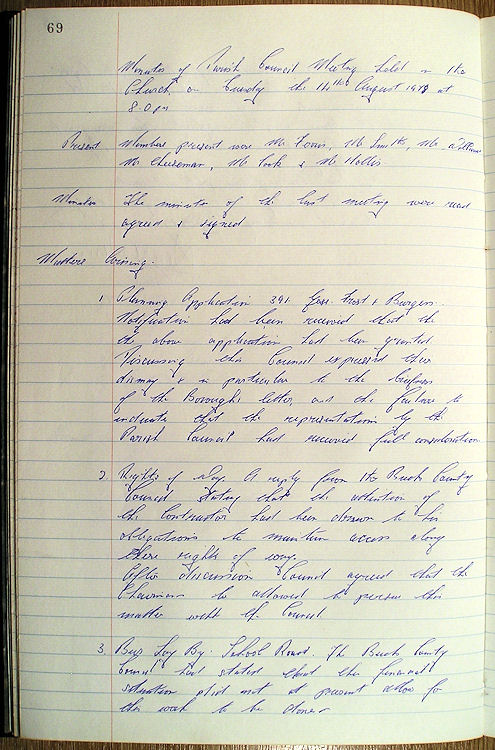 69
Minutes of Parish Council Meeting held in the
Church, on Sunday the 14th August 1978 at
8.0 pm
Present Members present were Mr Smith, Mr
Mr Cheeseman, Mr Poole & Mr Hollis
Minutes The minutes of the last meeting were read
agreed & signed
Matters Arising.
1. Planning Application 391 Frost & Burgess.
Notification had been received that the
the above application had been granted.
Discussing this Council expressed their
dismay & in particular to the briefness
of the Boroughs letter, and the failure to
indicate that the representations by the
Parish Council had received full consideration
2. Rights of Way. A reply from the Bucks County
Council stating that the attention of
the Contractor had been drawn to his
obligations to maintain access along
these rights of way.
After discussion Council agreed that the
Chairman be allowed to pursue this
matter with the Council.
3. Bus Lay By. School Road. The Bucks County
Council had stated that the financial
situation did not at present allow for
this work to be done